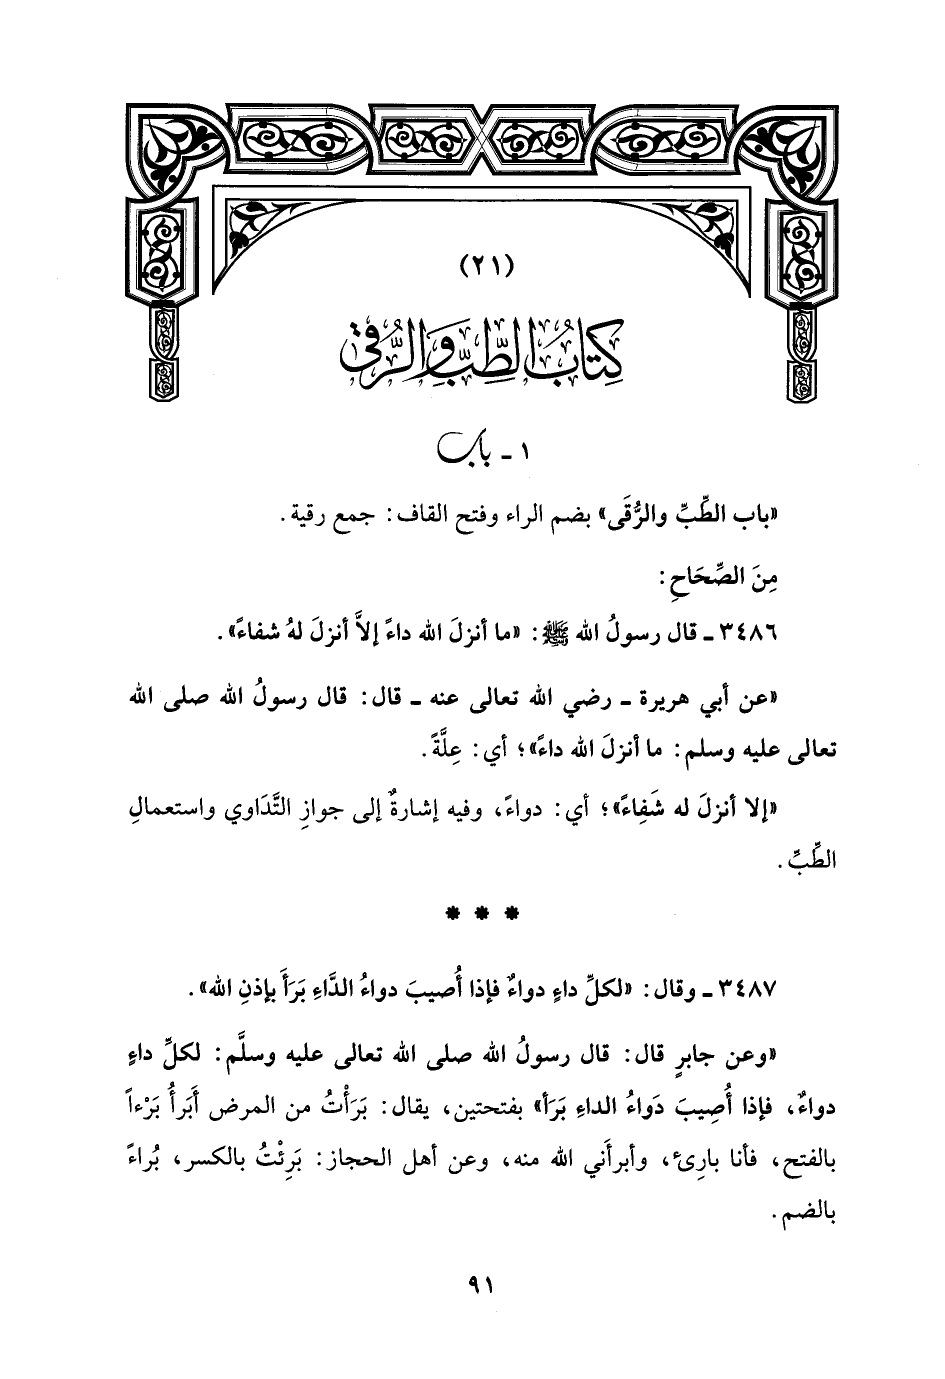 (٢١)
كِتَابُ الطِّبِّ وَالرُّقَى
١ - باب
«باب الطِّبِّ والرُّقَى» بضم الراء وفتح القاف: جمع رقية.
مِنَ الصِّحَاحِ:
٣٤٨٦ ـ قال رسولُ الله ﷺ: «ما أنزلَ الله داءً إلاَّ أنزلَ لهُ شفاءً».
«عن أبي هريرة ـ رضي الله تعالى عنه ـ قال: قال رسولُ الله صلى الله
تعالى عليه وسلم: ما أنزلَ الله داءً»؛ أي: عِلَّةً.
«إلا أنزلَ له شَفِاءً»؛ أي: دواءً، وفيه إشارةٌ إلى جوازِ التَّدَاوي واستعمالِ
الطِّبِّ.
* * *
٣٤٨٧ ـ وقال: «لكلِّ داءٍ دواءٌ فإذا أُصيبَ دواءُ الدَّاءِ بَرَأَ بإذنِ الله».
«وعن جابرٍ قال: قال رسولُ الله صلى الله تعالى عليه وسلَّم: لكلِّ داءٍ
دواءٌ، فإذا أُصِيبَ دَواءُ الداءِ بَرَأ» بفتحتين، يقال: بَرَأْتُ من المرض أَبَرأُ بَرْءاً
بالفتح، فأنا بارِئ، وأبرأَني الله منه، وعن أهل الحجاز: بَرِئْتُ بالكسر، بُراءً
بالضم.
٩١